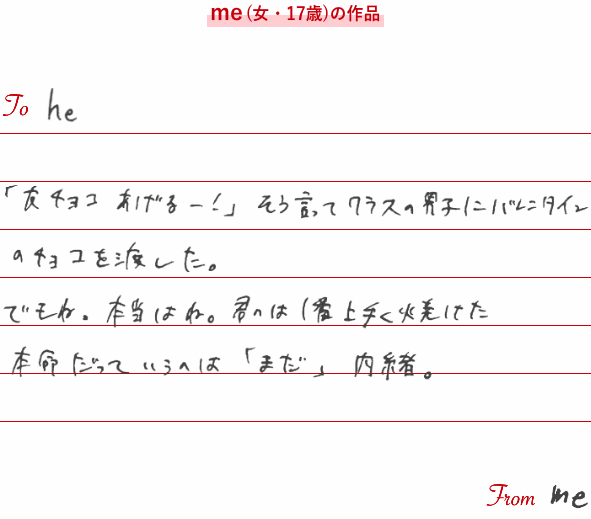 me(女・17歳)の作品
To he
「友チョコあげるー！」そう言ってクラスの男子にバレンタイン
のチョコを渡した。
でもね。本当はね。君のは1番上手く焼けた
本命だっていうのは「まだ」内緒。
From me